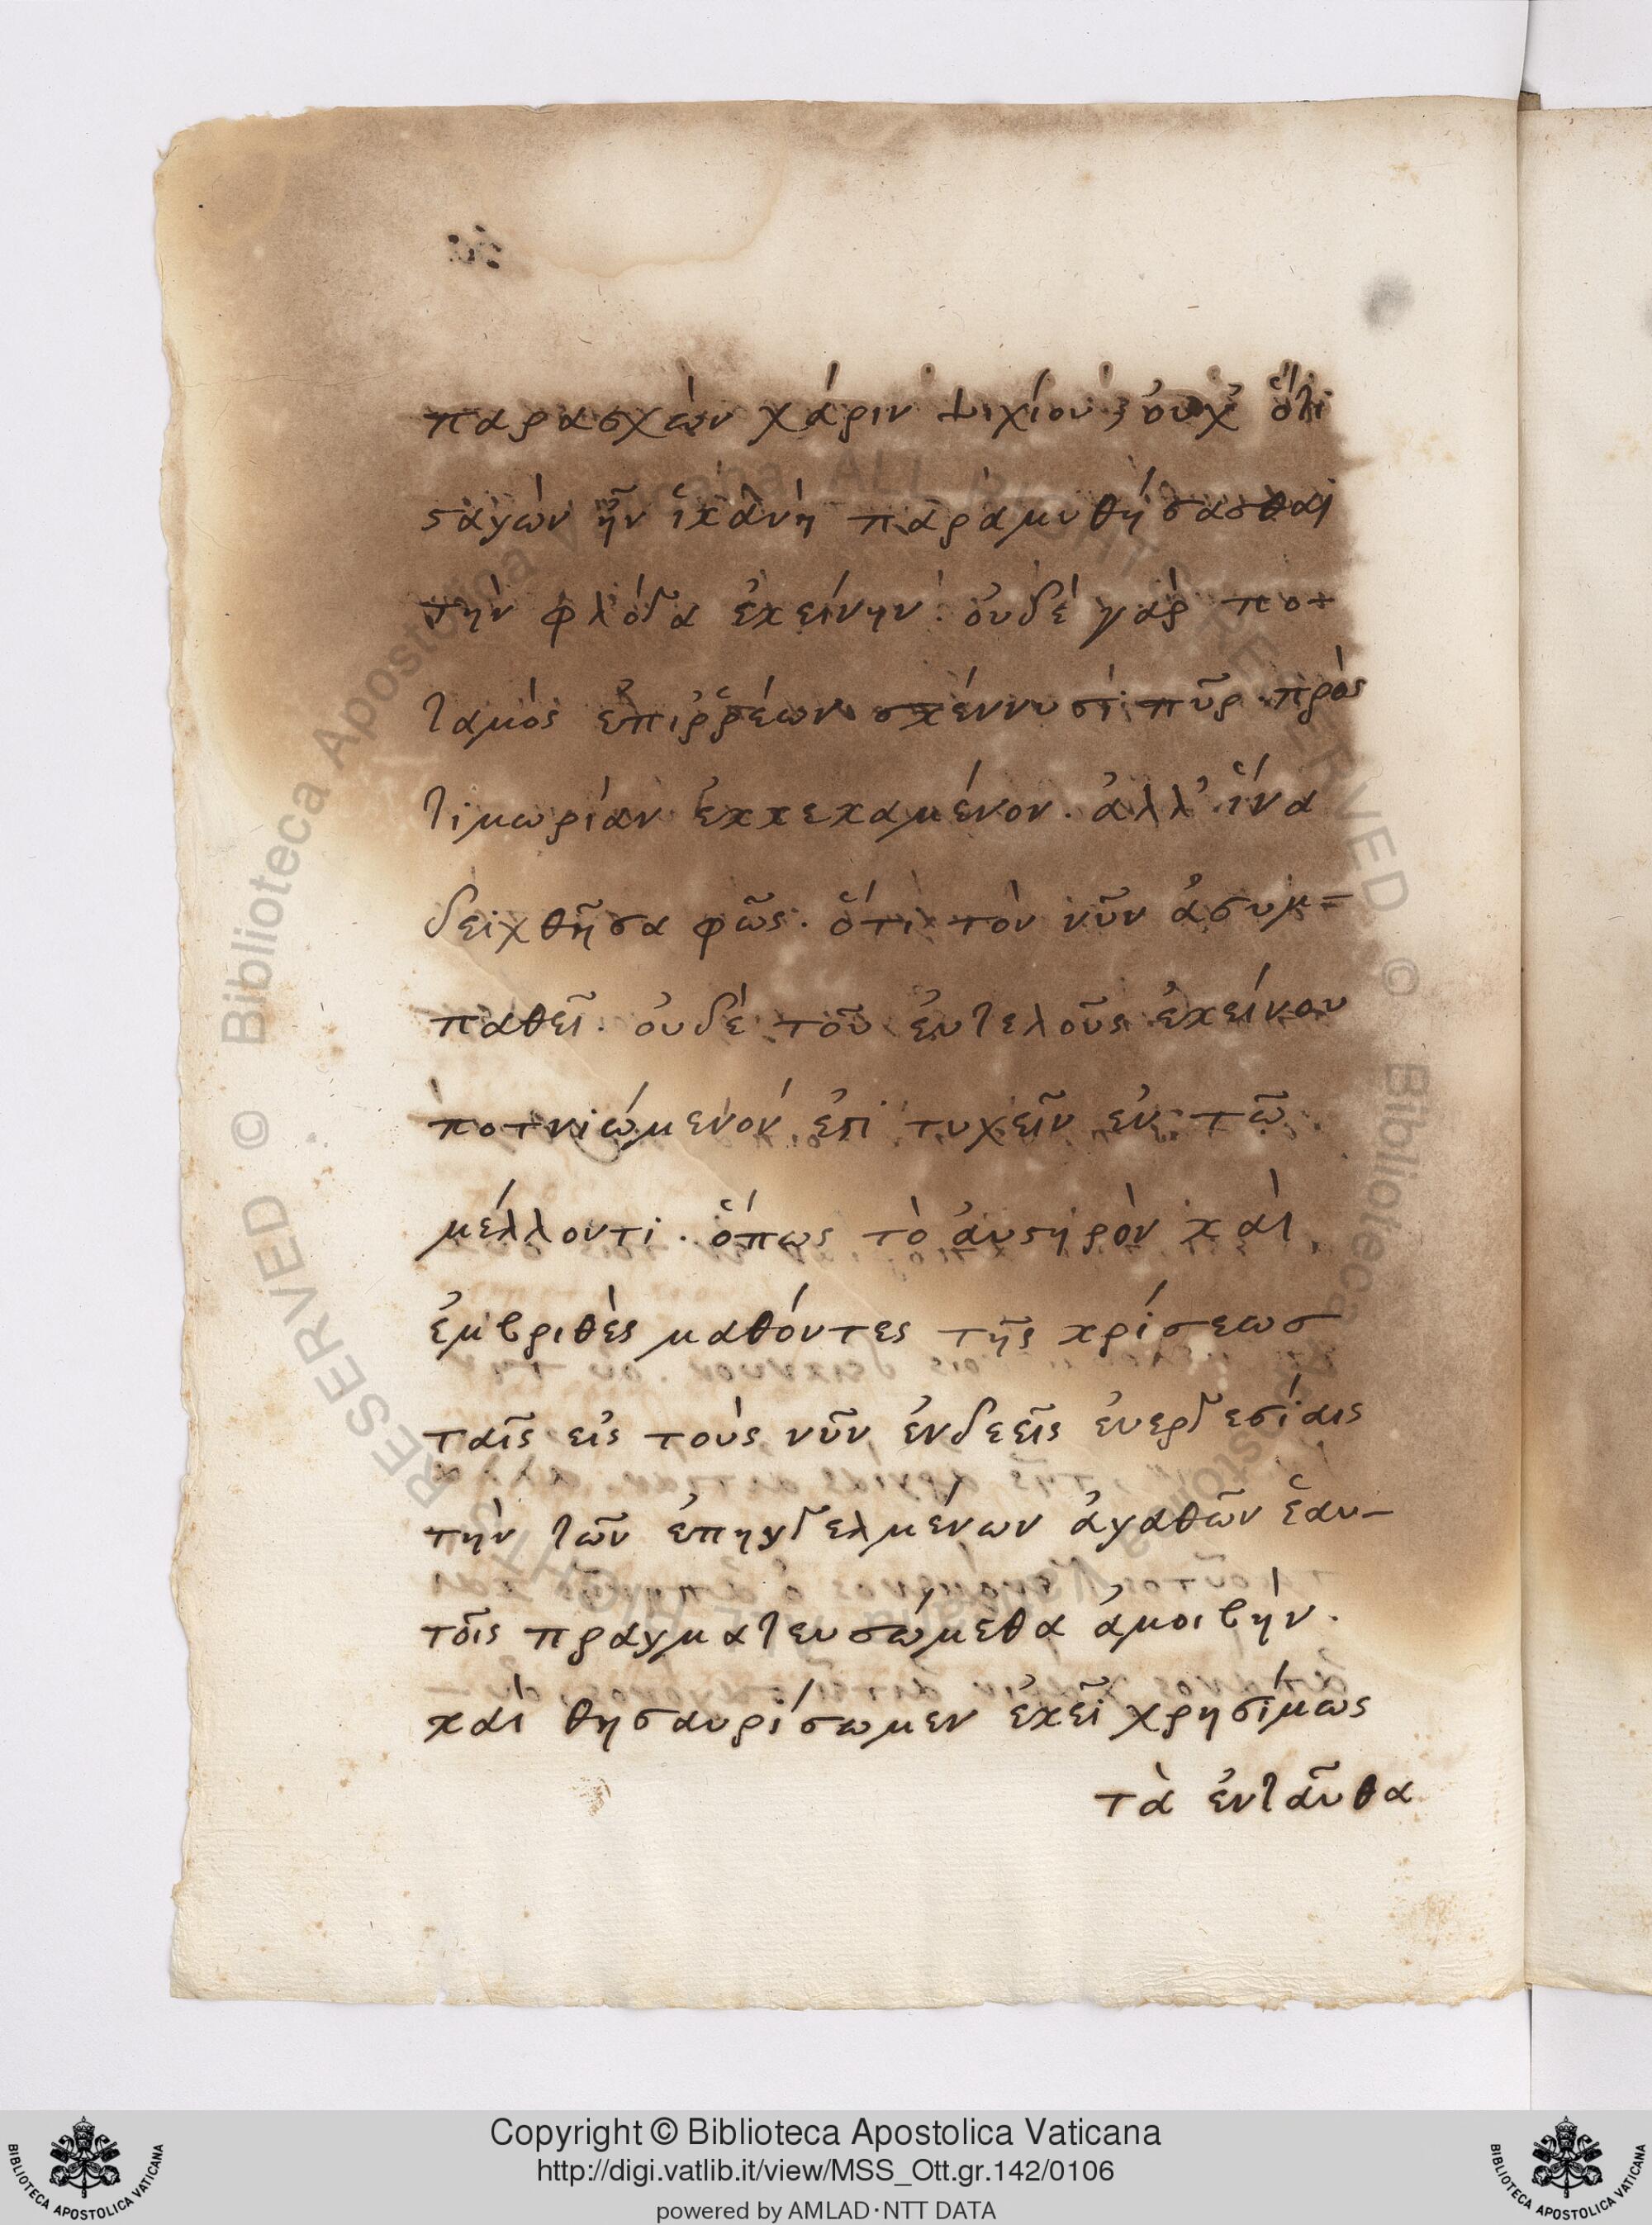 παρασχὼν χάριν ψιχίου; οὐχ ὅτι
σαγὼν ἦν ἱκανὴ παραμυθήσασθαι
τὴν φλόγα ἐκείνην· οὐδὲ γὰρ πο-
ταμὸς ἐπιῤῥέων σβέννυσι πῦρ πρὸς
τιμωρίαν ἐκκεκαμένον. ἀλλ' ἵνα
δειχθῆσα φῶς. ὅτι τὸν νῦν ἀσυμ=
παθεῖ. οὐδὲ τοῦ εὐτελοῦς ἐκείνου
ποτνιώμενον ἐπιτυχεῖν ἐν τῶ
μέλλοντι. ὅπως τὸ αὐστηρὸν καὶ
ἐμβριθὲς μαθόντες τῆς κρίσεως
ταῖς εἰς τοὺς νῦν ἐνδεεῖς εὐεργεσίαις
τὴν τῶν ἐπηγγελμένων ἀγαθῶν ἑαυ-
τοῖς πραγματευσώμεθα ἀμοιβὴν.
καὶ θησαυρίσωμεν ἐκεῖ χρησίμως
τὰ ἐνταῦθα
Copyright © Biblioteca Apostolica Vaticana
http://digi.vatlib.it/view/MSS_Ott.gr.142/0106
powered by AMLAD·NTT DATA
BIBLIOTECA APOSTOLICA VATICANA
BIBLIOTECA APOSTOLICA VATICANA